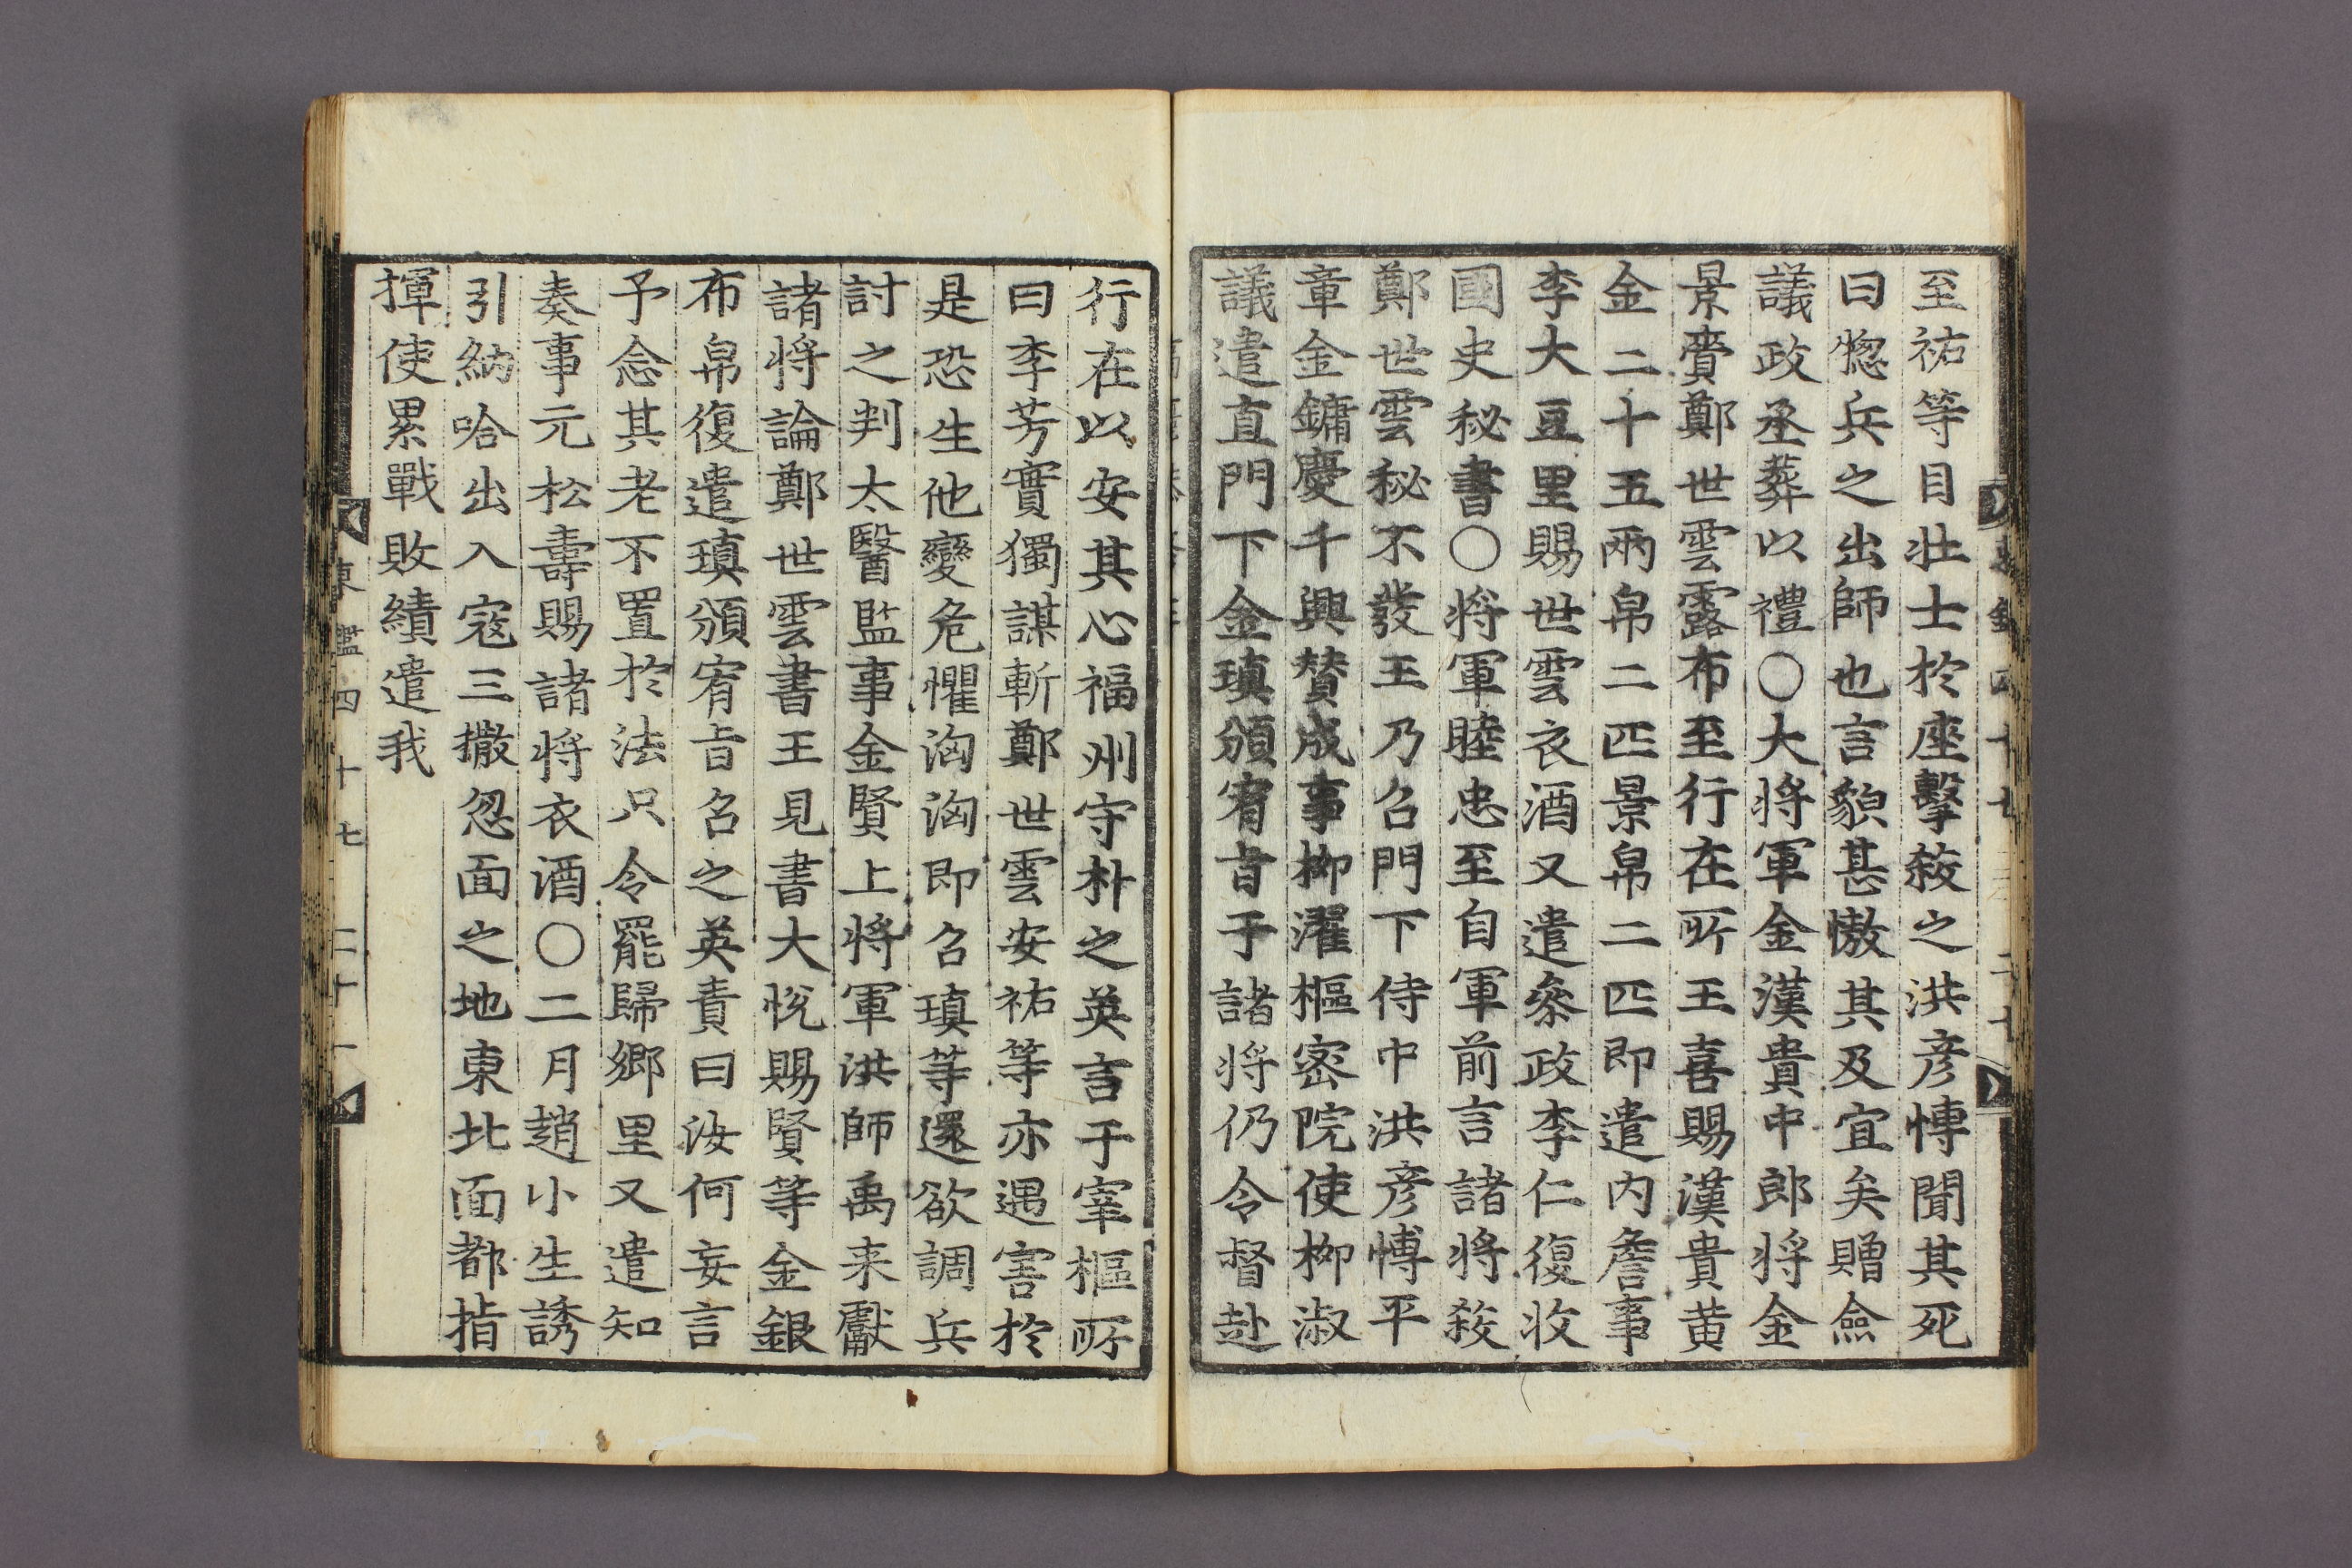 至祐等目壯士於座擊殺之洪彦愽聞其死
曰惣兵之出師也言貌甚慠其及宜矣贈僉
議政丞葬以禮○大将軍金漢貴中郎将金
景賷鄭世雲露布至行在所王喜賜漢貴黄
金二十五兩帛二匹景帛二匹即遣内詹事
李大豆里賜世雲衣酒又遣叅政李仁復收
國史秘書○将軍睦忠至自軍前言諸将殺
鄭世雲秘不發王乃召門下侍中洪彦愽平
章金鏞慶千興賛成事柳濯樞密院使柳淑
議遣直門下金瑱頒宥旨于諸将仍令督赴
行在以安其心福州守朴之英言于宰樞所
曰李芳實獨謀斬鄭世雲安祐等亦遇害於
是恐生他變危懼洶洶即召瑱等還欲調兵
討之判太醫監事金賢上将軍洪師禹来獻
諸将論鄭世雲書王見書大悦賜賢等金銀
布帛復遣瑱頒宥旨召之英責曰汝何妄言
予念其老不置於法只令罷歸鄉里又遣知
奏事元松壽賜諸将衣酒○二月趙小生誘
引納哈出入寇三撒忽面之地東北面都指
揮使累戰敗績遣我
東鑑四十七 二十一